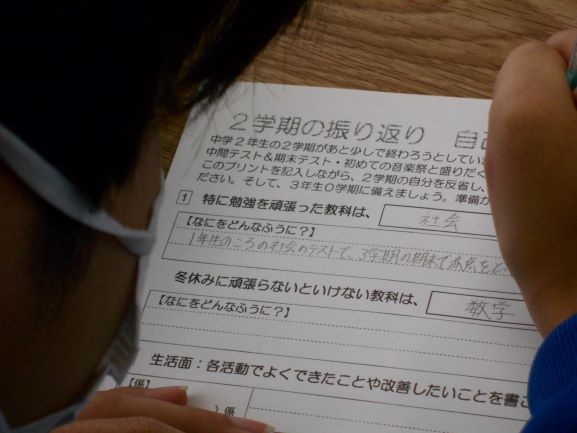 2学期の振り返り 自己
中学2年生の2学期があと少しで終わろうとしていま
中間テスト&期末テスト・初めての音楽祭と盛りだく
このプリントを記入しながら、2学期の自分を反省し、
ださい。そして、3年生0学期に備えましょう。準備が
1 特に勉強を頑張った教科は、 社会
【なにをどんなふうに?】
1年生のころの社会のテストで、3学期の期末で赤点を
冬休みに頑張らないといけない教科は、 数学
【なにをどんなふうに?】
生活面:各活動でよくできたことや改善したいことを書こ
【係】
)係